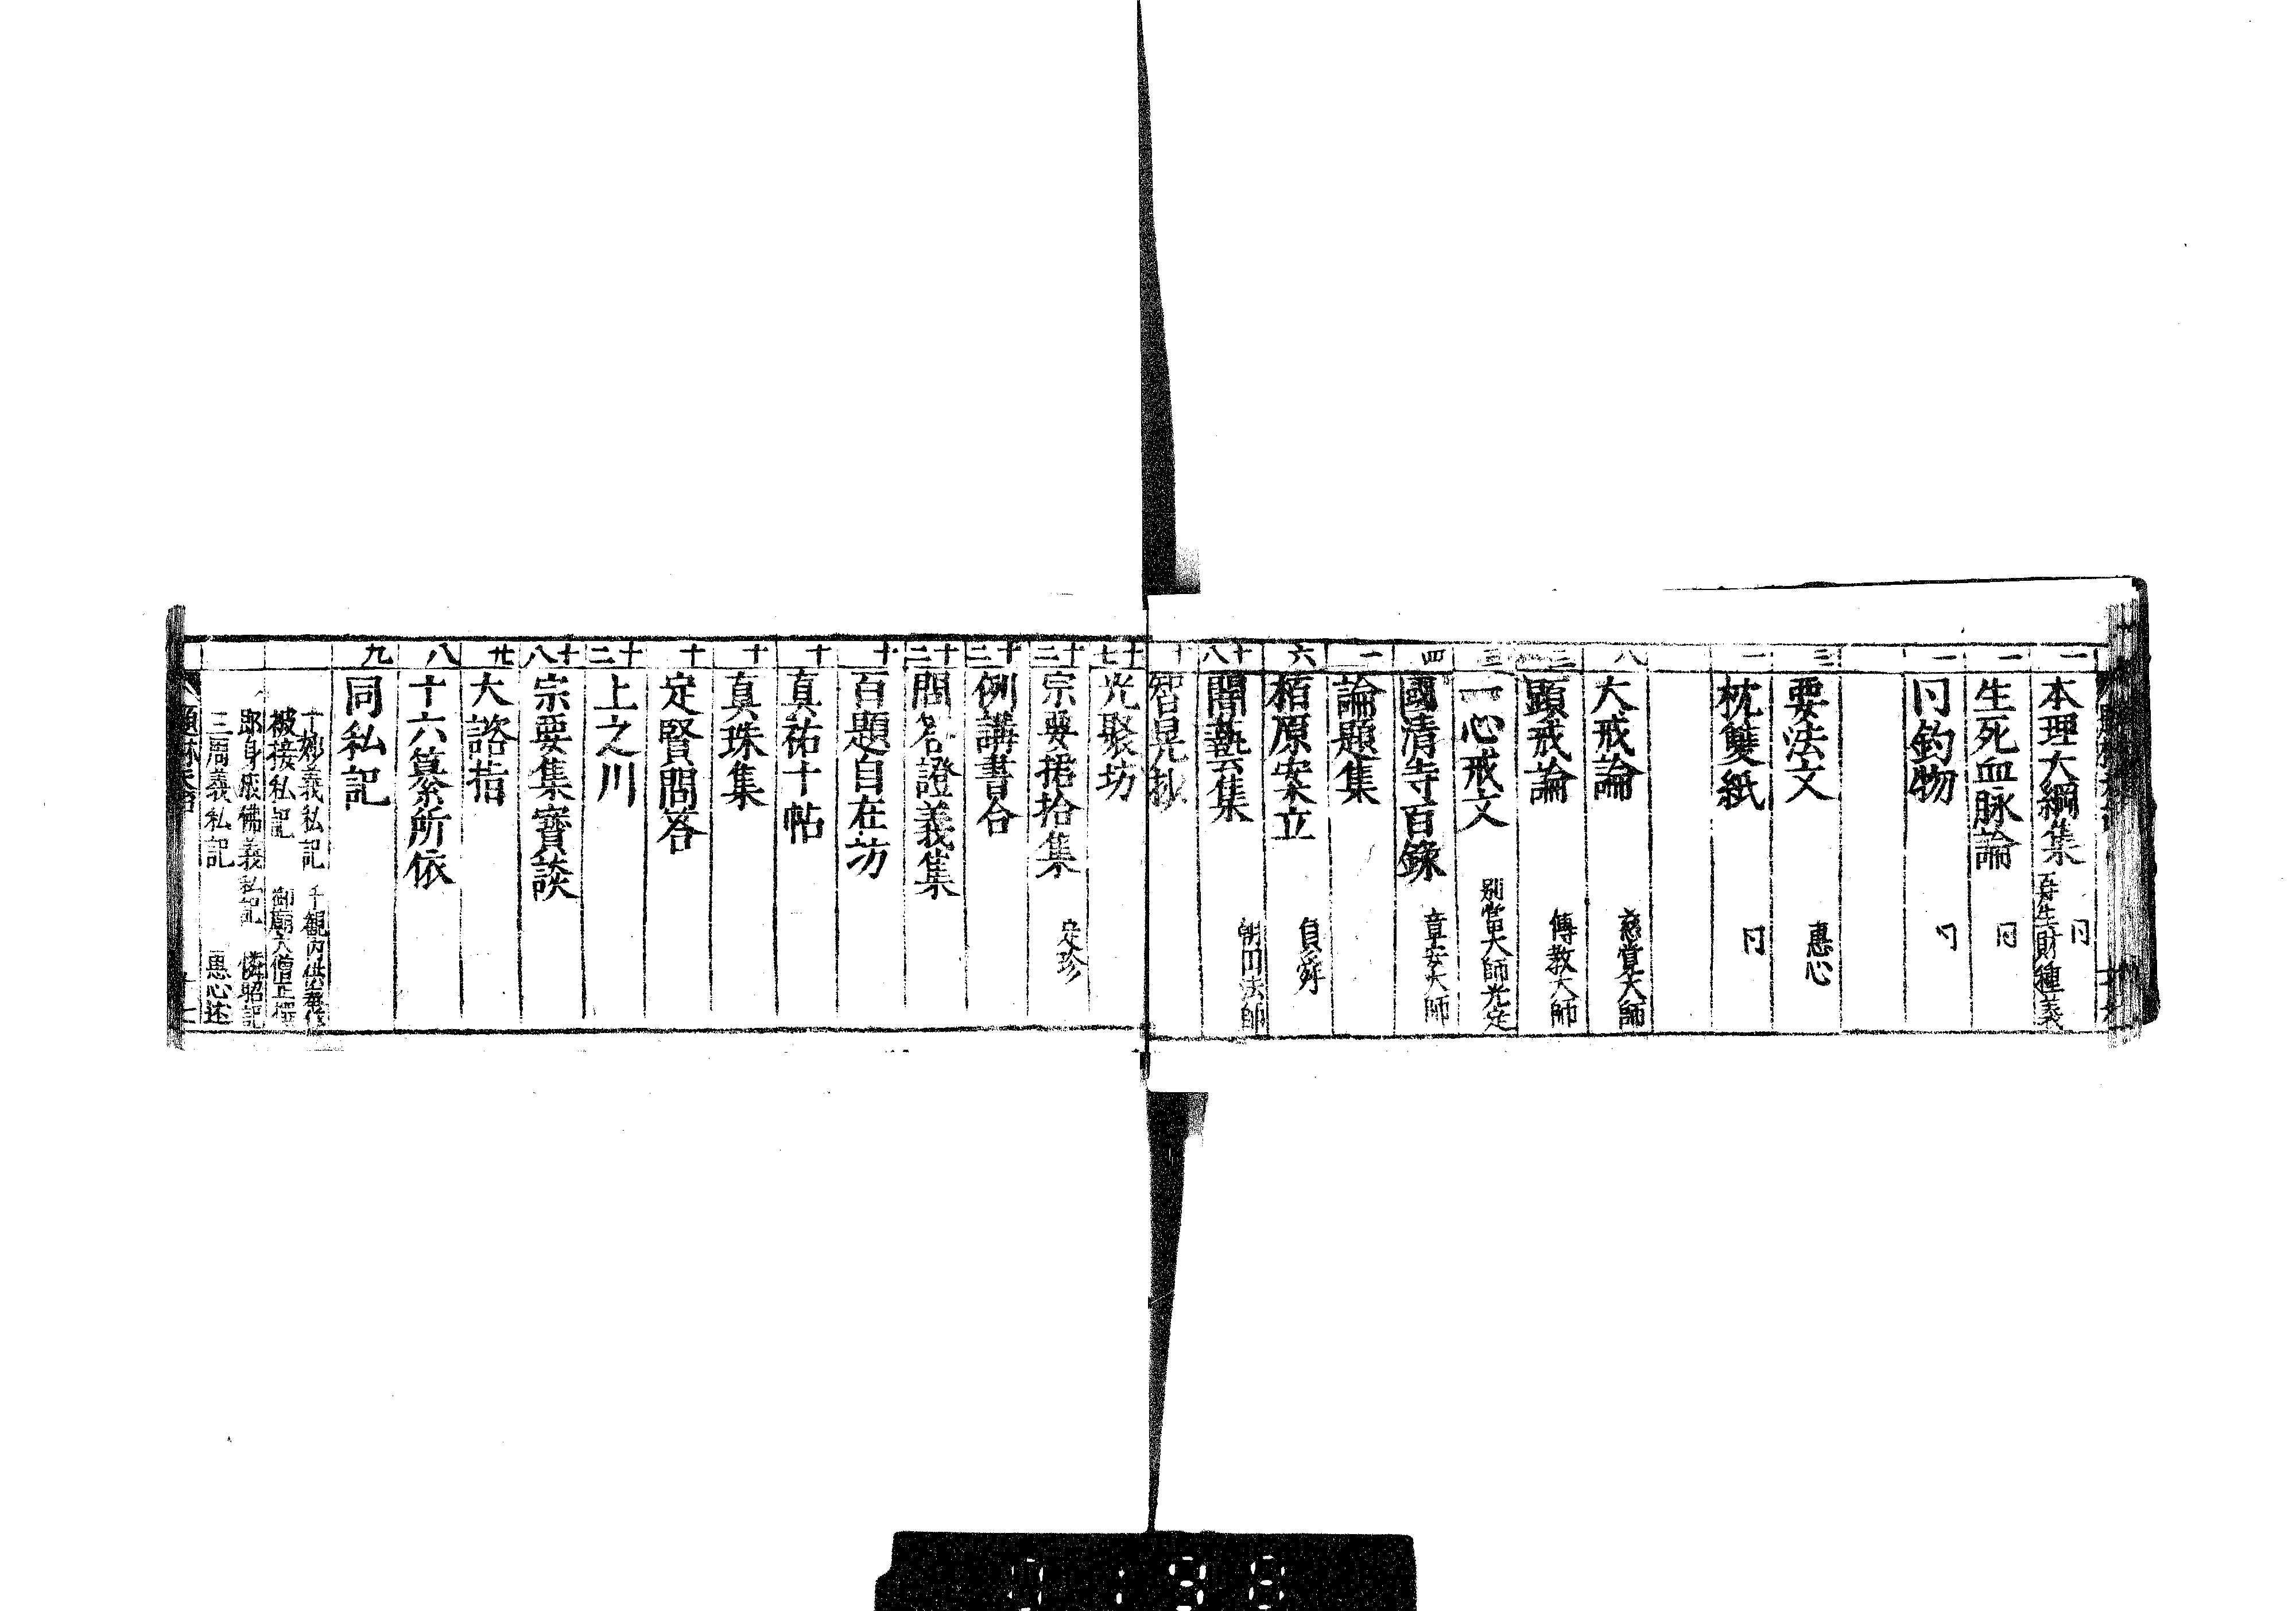 一 本理大綱集 五時生財種義 冃
一 生死血脉論 冃
一 冃釣物 冃
三 要法文 惠心
一 枕雙紙 冃
八 大戒論 慈覚大師
三 顕戒論 傳教大師
三 一心戒文 別當大師光定
四 國清寺百錄 章安大師
一 論題集
六 栢原案立 貞舜
十八 闇藝集 朝田法師
十 智晃抄
十七 光聚坊
十二 宗要捃拾集 定珍
十二 例講書合
十二 問答證義集
十 百題自在坊
十 真祐十帖
十 真珠集
十 定賢問答
十二 上之川
十八 宗要集寶談
廿 大諮指
八 十六算綮所依
九 同私記
十妙義私記 千観内供養
被接私記 御廟大僧正撰
即身成佛義私記 憐昭記
三周義私記 惠心述
十七